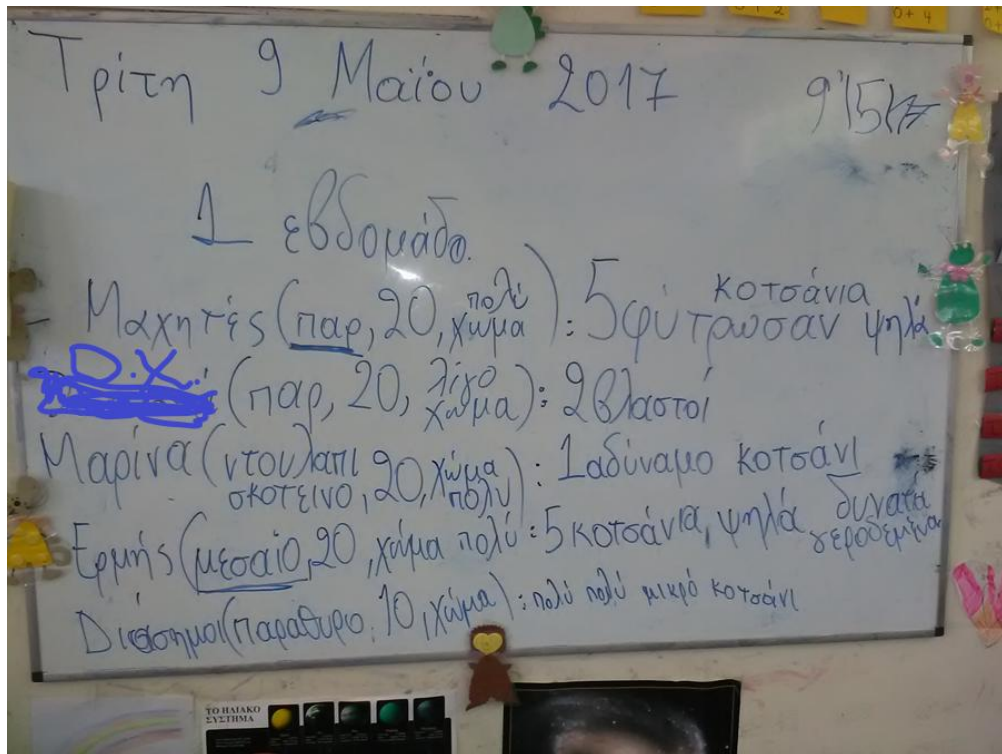 0+2
0+4
Τρίτη 9 Μαΐου 2017
9'15
1 εβδομάδα
- Μαχητές (παρ, 20, πολύ χώμα): 5 φύτρωσαν κοτσάνια ψηλά
D.X. (παρ, 20, λίγο χώμα): 2 βλαστοί
Μαρίνα (ντουλαπι σκοτεινο, 20, χώμα πολύ): 1 αδύναμο κοτσάνι
Ερμής (μεσαίο, 20, χώμα πολύ: 5 κοτσάνια, ψηλά δυνατα γεροδεμένα
Διάσημοι (παραθυρο, 10, χώμα): πολύ πολύ μικρό κοτσάνι
ΤΟ ΗΛΙΑΚΟ
ΣΥΣΤΗΜΑ